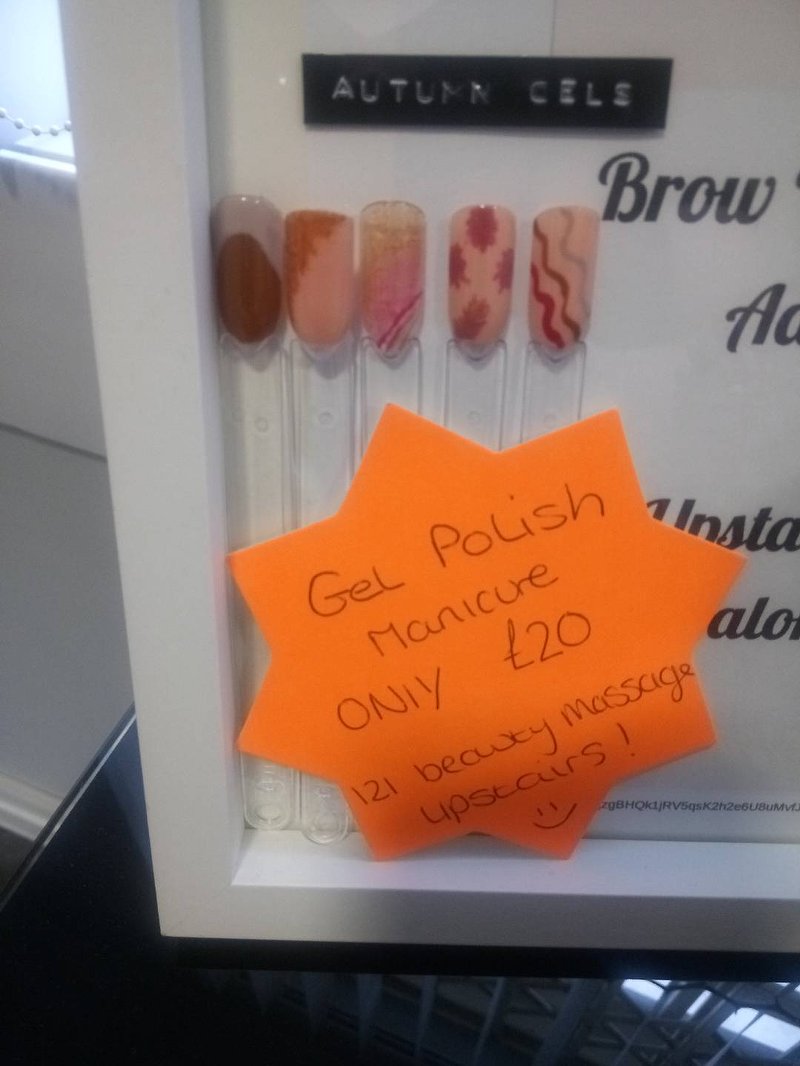 AUTUMN GELS
Brow
Ad
Upsta
alo
GeL PoLish
Manicure
ONlY £20
121 beauty massage
upstairs!
zgBHQk1jRV5qsK2h2e6U8uMvfJ